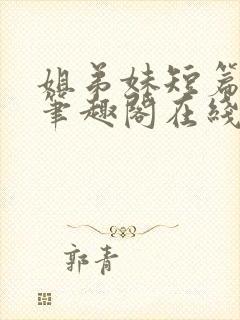 姐弟妹短篇
笔趣阁在线
郭青